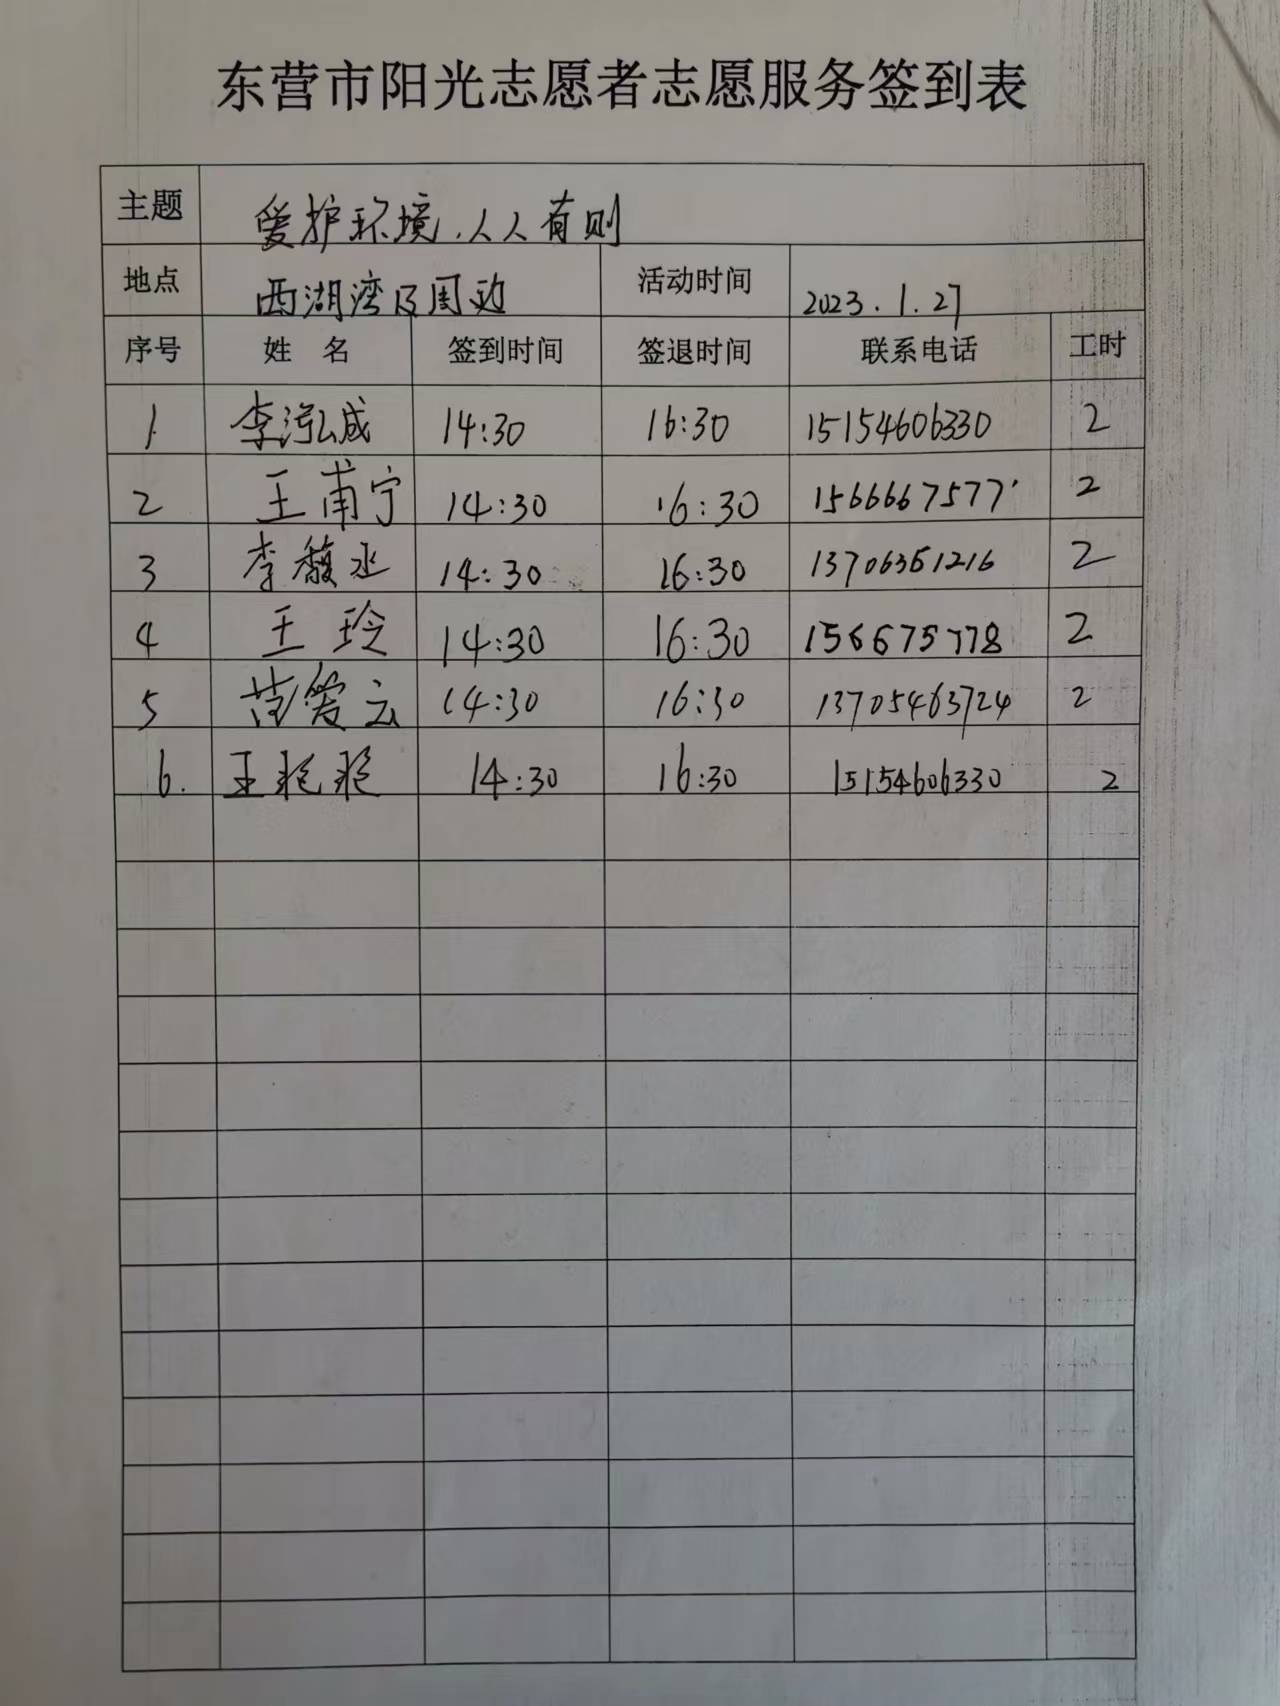 东营市阳光志愿者志愿服务签到表
主题 爱护环境,人人有则
地点 西湖湾及周边 活动时间 2023.1.27
序号 姓名 签到时间 签退时间 联系电话 工时
1 李泓成 14:30 16:30 15154606330 2
2 王甫宁 14:30 16:30 1566667577 2
3 李馥丞 14:30 16:30 13706351216 2
4 王玲 14:30 16:30 156675778 2
5 范爱云 14:30 16:30 13705463724 2
6. 王艳艳 14:30 16:30 15154606330 2